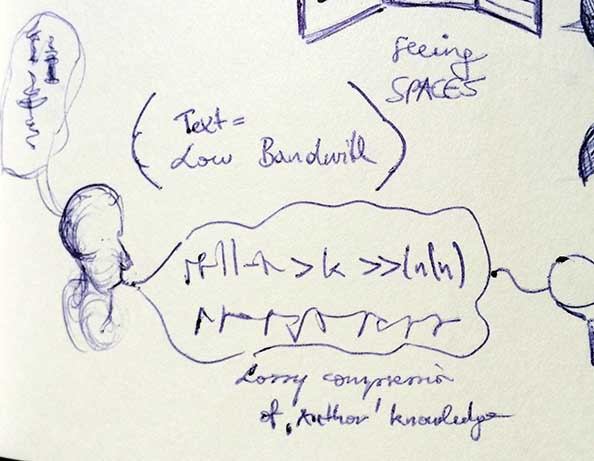 Seeing
SPACES
Text =
Low Bandwith
> k >> ln(n)
Lossy compression
of 'Author' knowledge